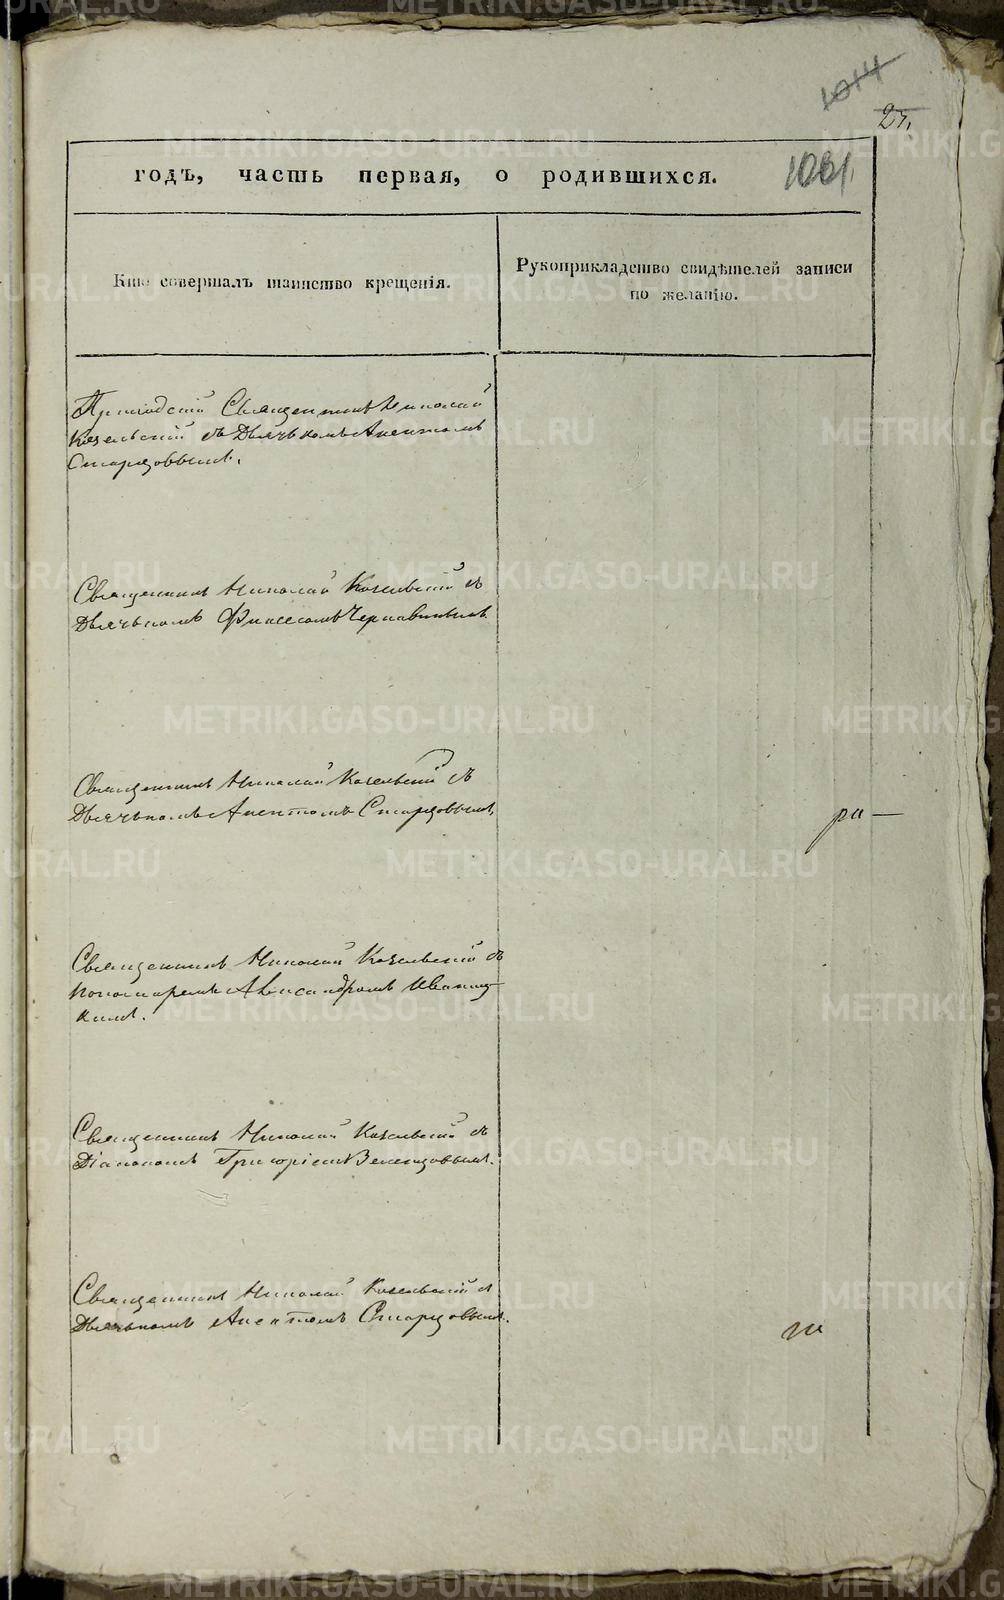 1014
27.
годъ, часть первая, о родившихся.
1031.
Кто совершалъ таинство крещенія.
Рукоприкладство свидѣтелей записи
по желанію.
Приходскій Священникъ Николай
Козельскій съ Дьячкомъ Аненномъ
Старцовымъ.
Священникъ Николай Козельскій съ
Дьячькомъ Чернавинымъ.
Священникъ Николай Козельскій съ
Дьячькомъ Старцовымъ,
ра—
Священникъ Николай Козельскій съ
пономаремъ Александромъ Иваниц-
кимъ.
Священникъ Николай Козельскій съ
Діакономъ Григоріемъ Зеленцовымъ.
Священникъ Николай Козельскій съ
Дьячькомъ Старцовымъ.
METRIKI.GASO-URAL.RU